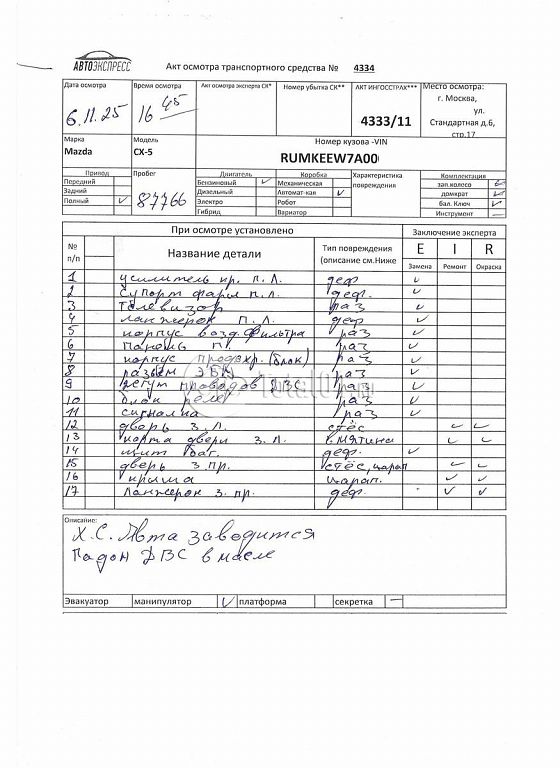 АВТОЭКСПРЕСС
Акт осмотра транспортного средства № 4334
Дата осмотра Время осмотра Акт осмотра эксперта СК* Номер убытка СК** АКТ ИНГОССТРАХ*** Место осмотра:
6.11.25 16 45 4333/11 г. Москва,
ул.
Стандартная д.6,
стр.17
Марка Модель Номер кузова -VIN
Mazda CX-5 RUMKEEW7A00
Привод Пробег Двигатель Коробка Характеристика повреждения Комплектация
Передний 87766 Бензиновый ✓ Механическая зап.колесо ✓
Задний Дизельный Автомат-кая ✓ домкрат ✓
Полный ✓ Электро Робот бал. Ключ ✓
Гибрид Вариатор Инструмент —
При осмотре установлено Заключение эксперта
№ п/п Название детали Тип повреждения (описание см.Ниже E I R
Замена Ремонт Окраска
1 усилитель кр. п.л. деф ✓
2 Супорт фары п.л. деф. ✓
3 Телевизор раз ✓
4 Ланжерон п.л. деф ✓
5 корпус возд.фильтра раз ✓
6 Панель пр. раз ✓
7 корпус предохр. (блок) раз ✓
8 разъем ЭБУ раз ✓
9 жгут проводов ДВС раз ✓
10 блок реле раз ✓
11 сигналка раз ✓
12 дверь з.л. стёс ✓ ✓
13 карта двери з.л. вмятина ✓ ✓
14 щит баг. деф. ✓
15 дверь з.пр. стёс, царап ✓ ✓
16 крыша царап. ✓ ✓
17 Ланжерон з. пр. деф. ✓ ✓
Описание:
Х.С. Авта заводится
Падон ДВС в масле
Эвакуатор манипулятор ✓ платформа секретка —